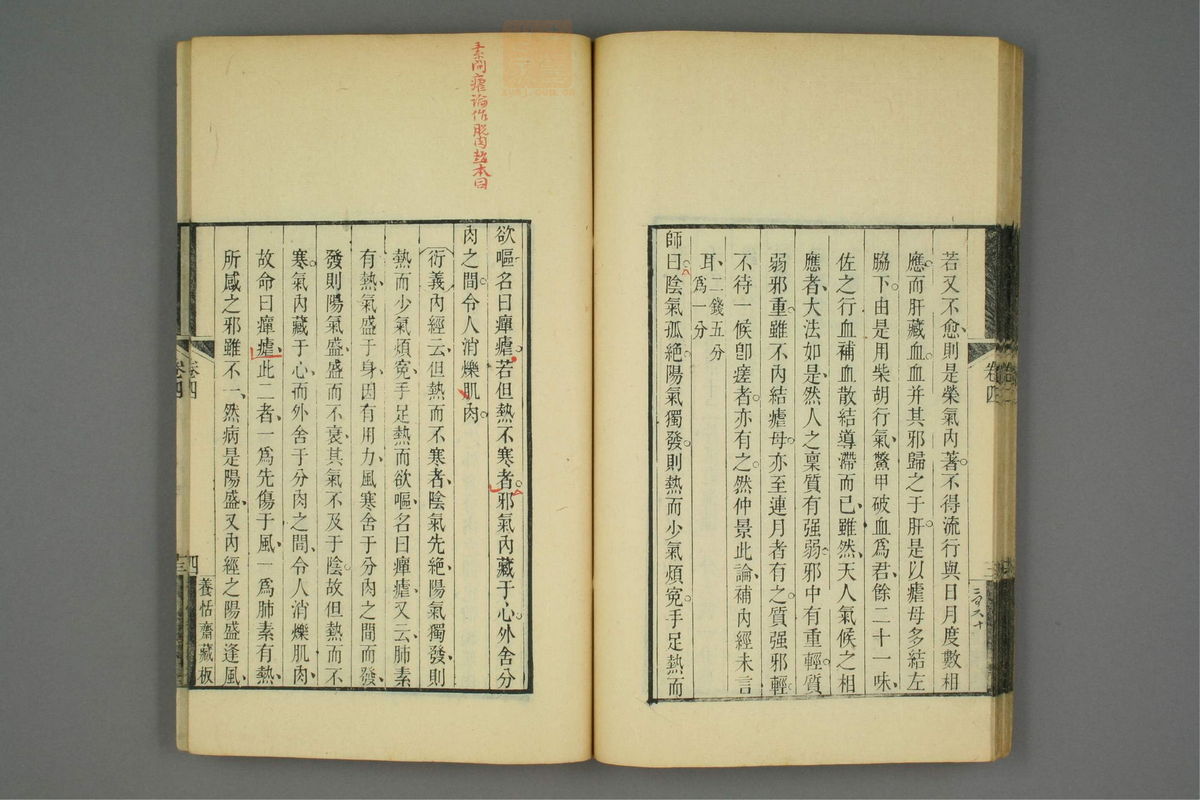 若又不愈則是榮氣內著不得流行與日月度數相
應而肝藏血血并其邪歸之于肝是以瘧母多結左
脇下由是用柴胡行氣鱉甲破血爲君餘二十一味
佐之行血補血散結導滯而已雖然天人氣候之相
應者大法如是然人之稟質有强弱邪中有重輕質
弱邪重雖不內結瘧母亦至連月者有之質强邪輕
不待一候卽瘥者亦有之然仲景此論補內經未言
耳二錢五分
爲一分
師曰陰氣孤絶陽氣獨發則熱而少氣煩寃手足熱而
卷四
素問瘧論作脫肉趙本同
欲嘔名曰癉瘧若但熱不寒者邪氣內藏于心外舍分
肉之間令人消爍肌肉
衍義內經云但熱而不寒者陰氣先絶陽氣獨發則
熱而少氣煩寃手足熱而欲嘔名曰癉瘧又云肺素
有熱氣盛于身因有用力風寒舍于分肉之間而發
發則陽氣盛盛而不衰其氣不及于陰故但熱而不
寒氣內藏于心而外舍于分肉之間令人消爍肌肉
故命曰癉瘧此二者一爲先傷于風一爲肺素有熱
所感之邪雖不一然病是陽盛又內經之陽盛逢風
卷四
養恬齋藏板